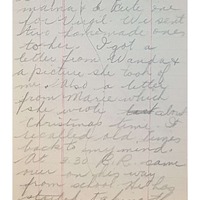 mama & a cute one
for Virgil. We sent
two homemade ones
to her. I got a
letter from Wanda &
a picture she took of
me. Also a letter
from Marie which
she wrote about
Christmas time. It
recalled old
back to my mind.
At 3:30 B.R. came
over on his way
from school. He has